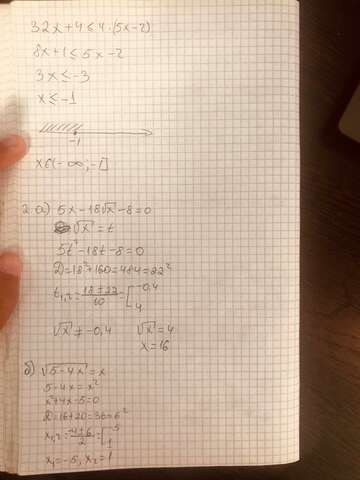 32x+4≤4·(5x-2)
8x+1≤5x-2
3x≤-3
x≤-1
-1
x∈(-∞;-1]
2. а) 5x-18√x-8=0
√x=t
5t²-18t-8=0
D=18²+160=484=22²
t₁,₂=(18±22)/10=[-0,4 4
√x≠-0,4 √x=4
x=16
б) √(5-4x)=x
5-4x=x²
x²+4x-5=0
D=16+20=36=6²
x₁,₂=(-4±6)/2=[-5 1
x₁=-5, x₂=1